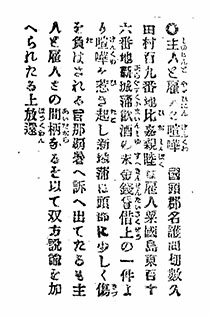 ◎主人と雇人と喧嘩 國頭郡名護間切數久
田村百九番地比嘉親睦は雇人粟國島東百十
六番地新城蒲飲酒の末金錢貸借上の一件よ
り喧嘩を惹き起し新城蒲は頭部に少しく傷
を負はされ那覇署へ訴へ出てたるも主
人と雇人との間柄なるを以て双方説諭を加
へられたる上放還